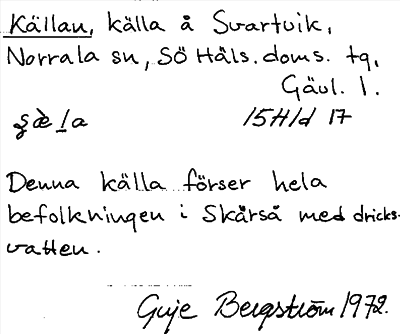 Källan, källa å Svartvik,
Norrala sn, SÖ Häls. doms. tg,
Gävl. l.
15H1d 17
Denna källa förser hela
befolkningen i Skärså med dricks-
vatten.
Guje Bergström 1972.